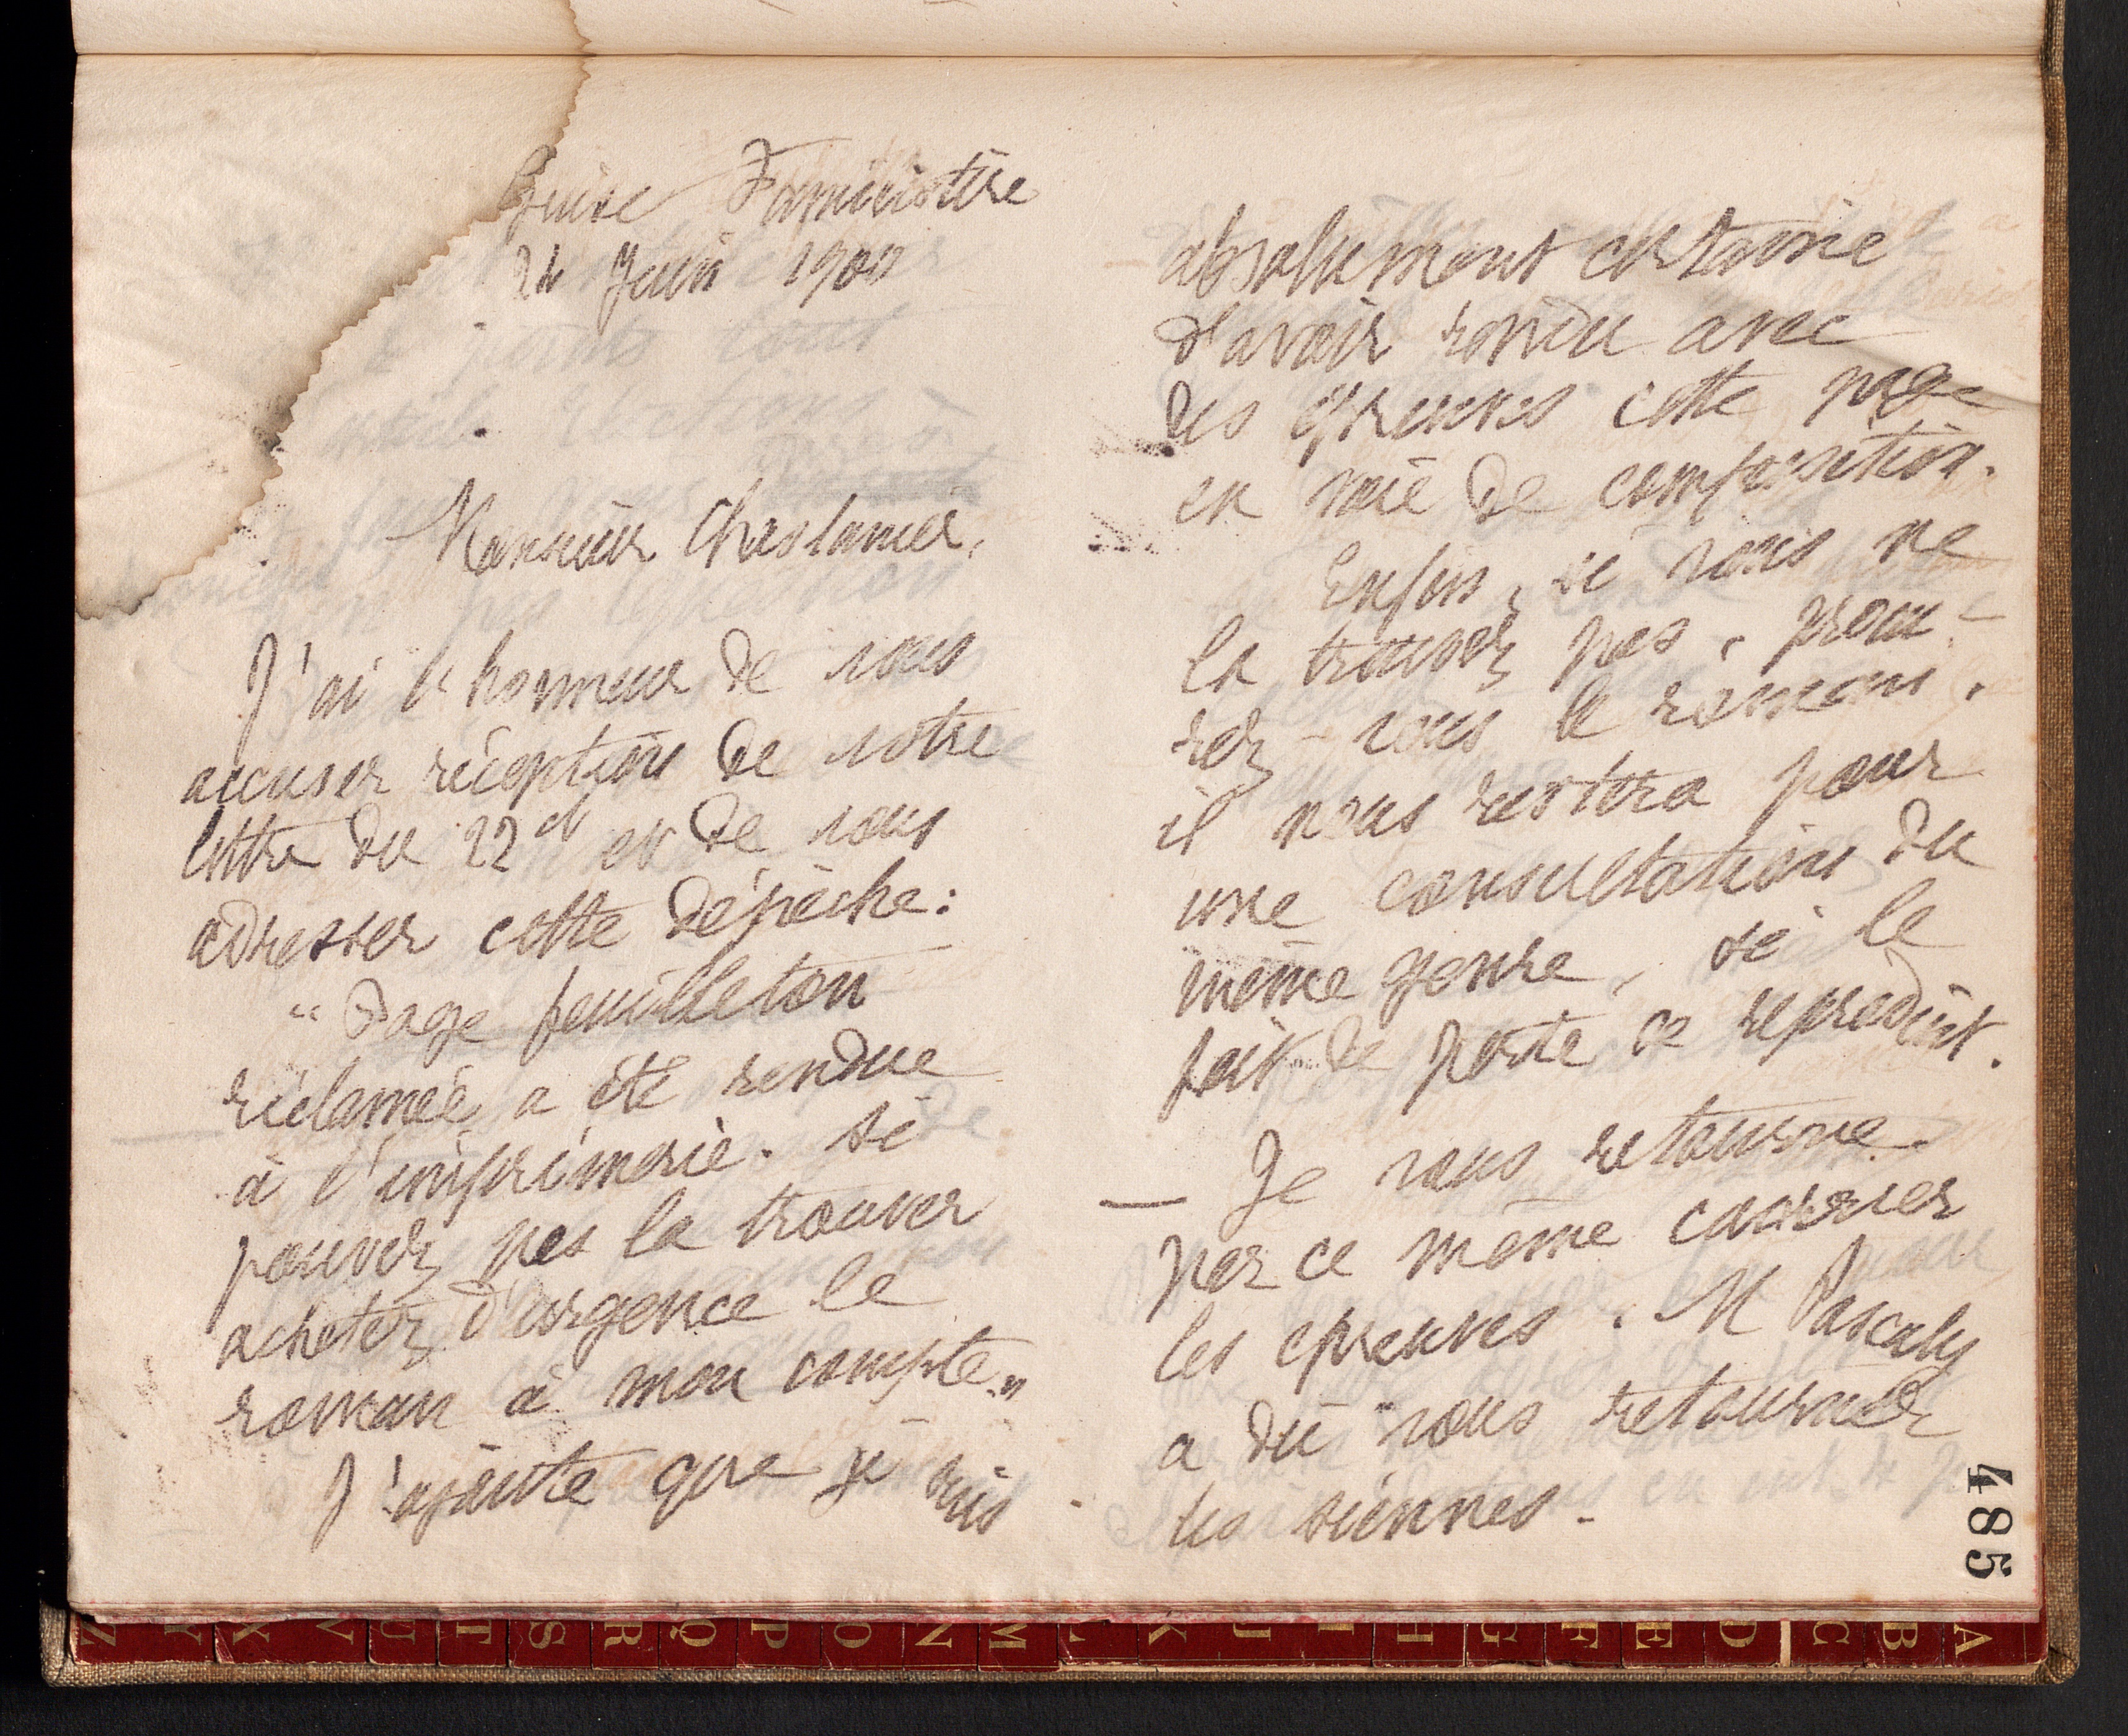 Guise Familistère
24 Juin 1900
Monsieur Chastanier,
J'ai l'honneur de vous
accuser réception de votre
lettre du 22 ct et de vous
adresser cette dépêche:
"Page feuilleton
réclamée a été rendue
à l'imprimerie. si
pouvez pas la trouver
achetez d'urgence le
roman à mon compte."
J'ajoute que je suis
absolument certaine
d'avoir rendu avec
des épreuves cette page
en voie de composition.
Enfin, si vous ne
la trouvez pas, procu-
rez-vous le roman,
il nous restera pour
une consultation du
même genre, si le
fait de perte se reproduit.
— Je vous retourne
par ce même courrier
les épreuves. M Pascaly
a dû vous retourner
les siennes.
485
Z Y X V U T S R Q P O N M L K J I H G F E D C B A